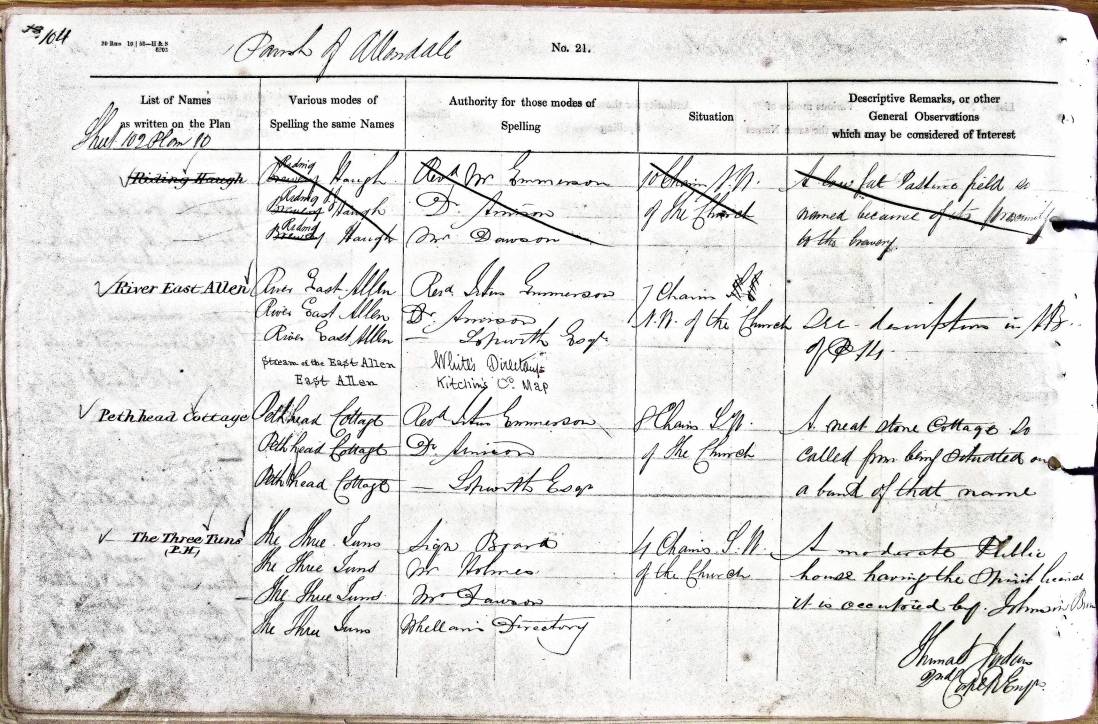 104
Parish of Allendale
No. 21.
List of Names as written on the Plan
Various modes of Spelling the same Names
Authority for those modes of Spelling
Situation
Descriptive Remarks, or other General Observations which may be considered of Interest
Sheet 102 Plan 10
Riding Haugh
Riding Haugh
Revd Mr Emmerson
10 Chains N.W.
A low fat Pasture field so
Riding Haugh
Dr. Arnison
of the Church
named because of its
Riding Haugh
Mr Dawson
to the brewery.
River East Allen
River East Allen
Revd Emmerson
7 Chains
River East Allen
Dr. Arnison
N.W. of the Church
See description in
River East Allen
— Esqr
of 14.
Stream of the East Allen
White's Directory
East Allen
Kitchin's Co. Map
Pethhead Cottage
Pethhead Cottage
Revd Emmerson
8 Chains S.W.
A neat stone Cottage so
Pethhead Cottage
Dr. Arnison
of the Church
called from being situated on
Pethhead Cottage
— Esqr
a bank of that name
The Three Tuns
(P.H.)
The Three Tuns
Sign Board
4 Chains S.W.
A moderate Public
The Three Tuns
Mr Holmes
of the Church
house having the Spirit licence
The Three Tuns
Mr Dawson
it is occupied by Johnson
The Three Tuns
Whellan's Directory
Thomas
2nd Corpl R Engrs.